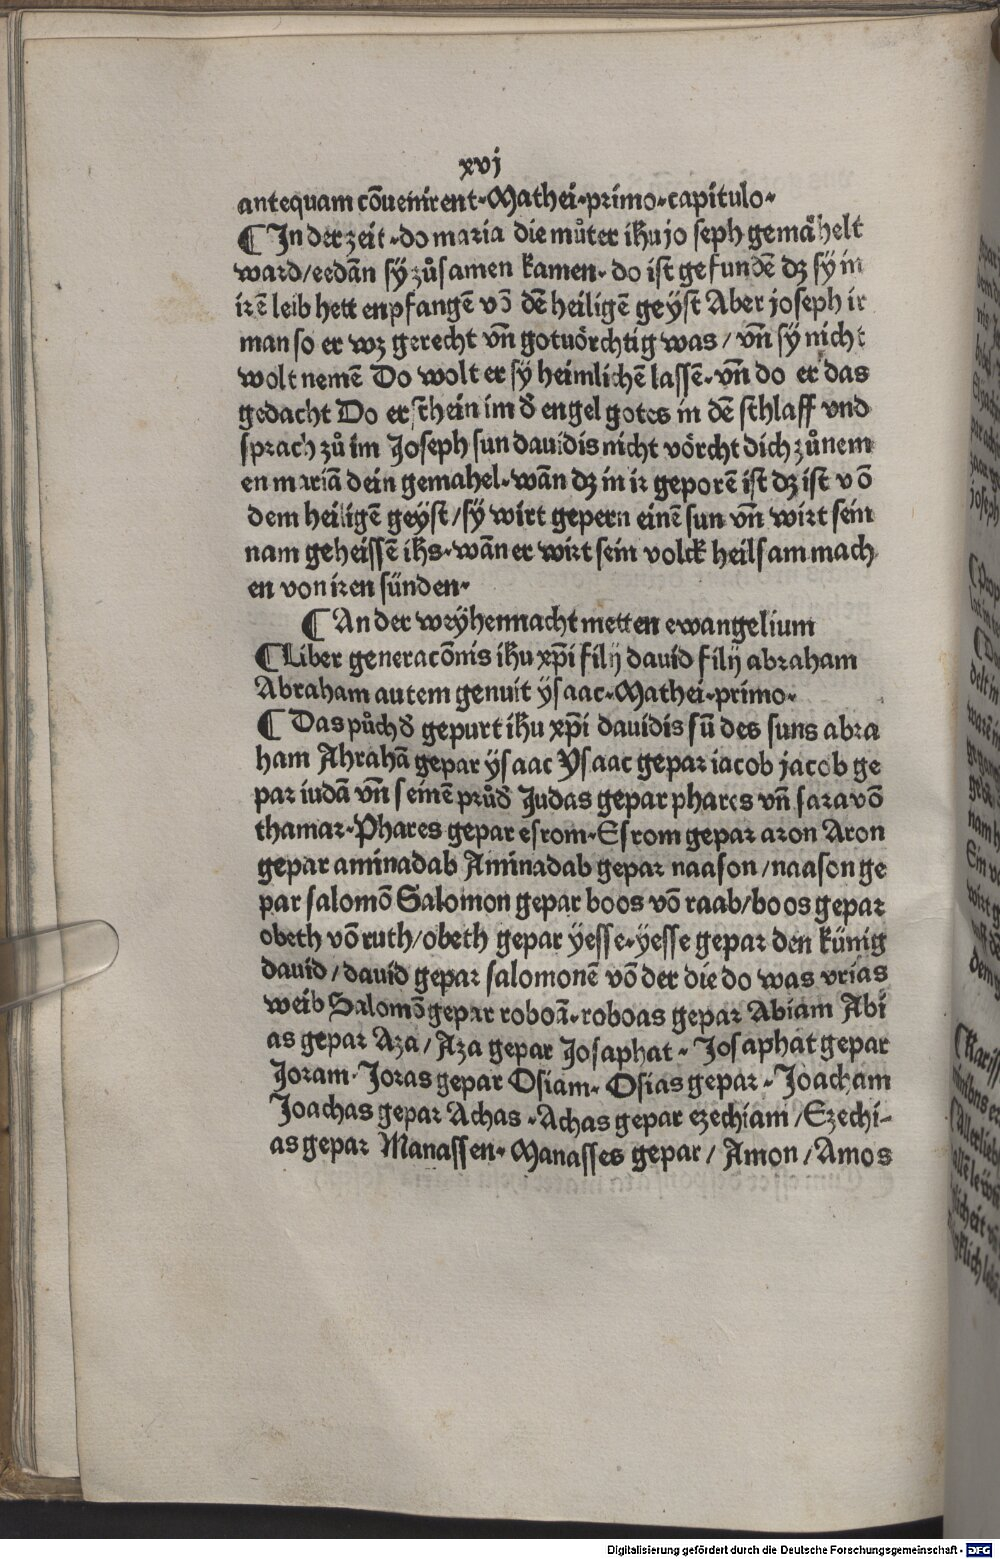 xvj
antequam cōuenirent·Mathei·primo·capitulo·
¶ In der zeit·do maria die můter ihu jo seph gemåhelt
ward/eedañ sÿ zůsamen kamen·do ist gefundē dz sy in
irē leib hett enpfangē vō dē heiligē geyst Aber joseph ir
man so er wz gerecht vñ gotuörchtig was/vñ sy nicht
wolt nemē Do wolt er sÿ heimlichē lassē·vñ do er das
gedacht Do erschein im d̄ engel gotes in dē schlaff vnd
sprach zů im Joseph sun dauidis nicht vörcht dich zůnem
en mariā dein gemahel·wān dz in ir geporē ist dz ist vō
dem heiligē geyst/sÿ wirt gepern einē sun vñ wirt sein
nam geheissē ihs·wān er wirt sein volck heilsam mach
en von iren sünden·
¶ An der wyhennacht metten ewangelium
¶ Liber generacōnis ihu xp̄i filij dauid filij abraham
Abraham autem genuit ÿsaac·Mathei·primo·
¶ Das půch d̄ gepurt ihu xp̄i dauidis sū des suns abra
ham Ahrahā gepar ÿsaac Ysaac gepar iacob jacob ge
par iudā vñ seinē průd̄ Judas gepar phares vñ sara vō
thamar·Phares gepar esrom·Esrom gepar aron Aron
gepar aminadab Aminadab gepar naason/naason ge
par salomō Salomon gepar boos vō raab/boos gepar
obeth vō ruth/obeth gepar ÿesse·ÿesse gepar den künig
dauid/dauid gepar salomonē vō der die do was vrias
weib Salomō gepar roboā·roboas gepar Abiam Abi
as gepar Aza/Aza gepar Josaphat·Josaphat gepar
Joram·Joras gepar Osiam·Osias gepar·Joacham
Joachas gepar Achas·Achas gepar ezechiam/Ezechi-
as gepar Manassen·Manasses gepar/Amon/Amos
Digitalisierung gefördert durch die Deutsche Forschungsgemeinschaft - DFG